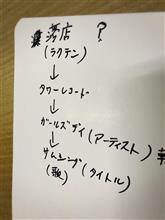 落店 ?
(ラクテン)
↓
タワーレコード
↓
ガールズデイ(アーティスト)
↓
サムシング(タイトル)
(歌)